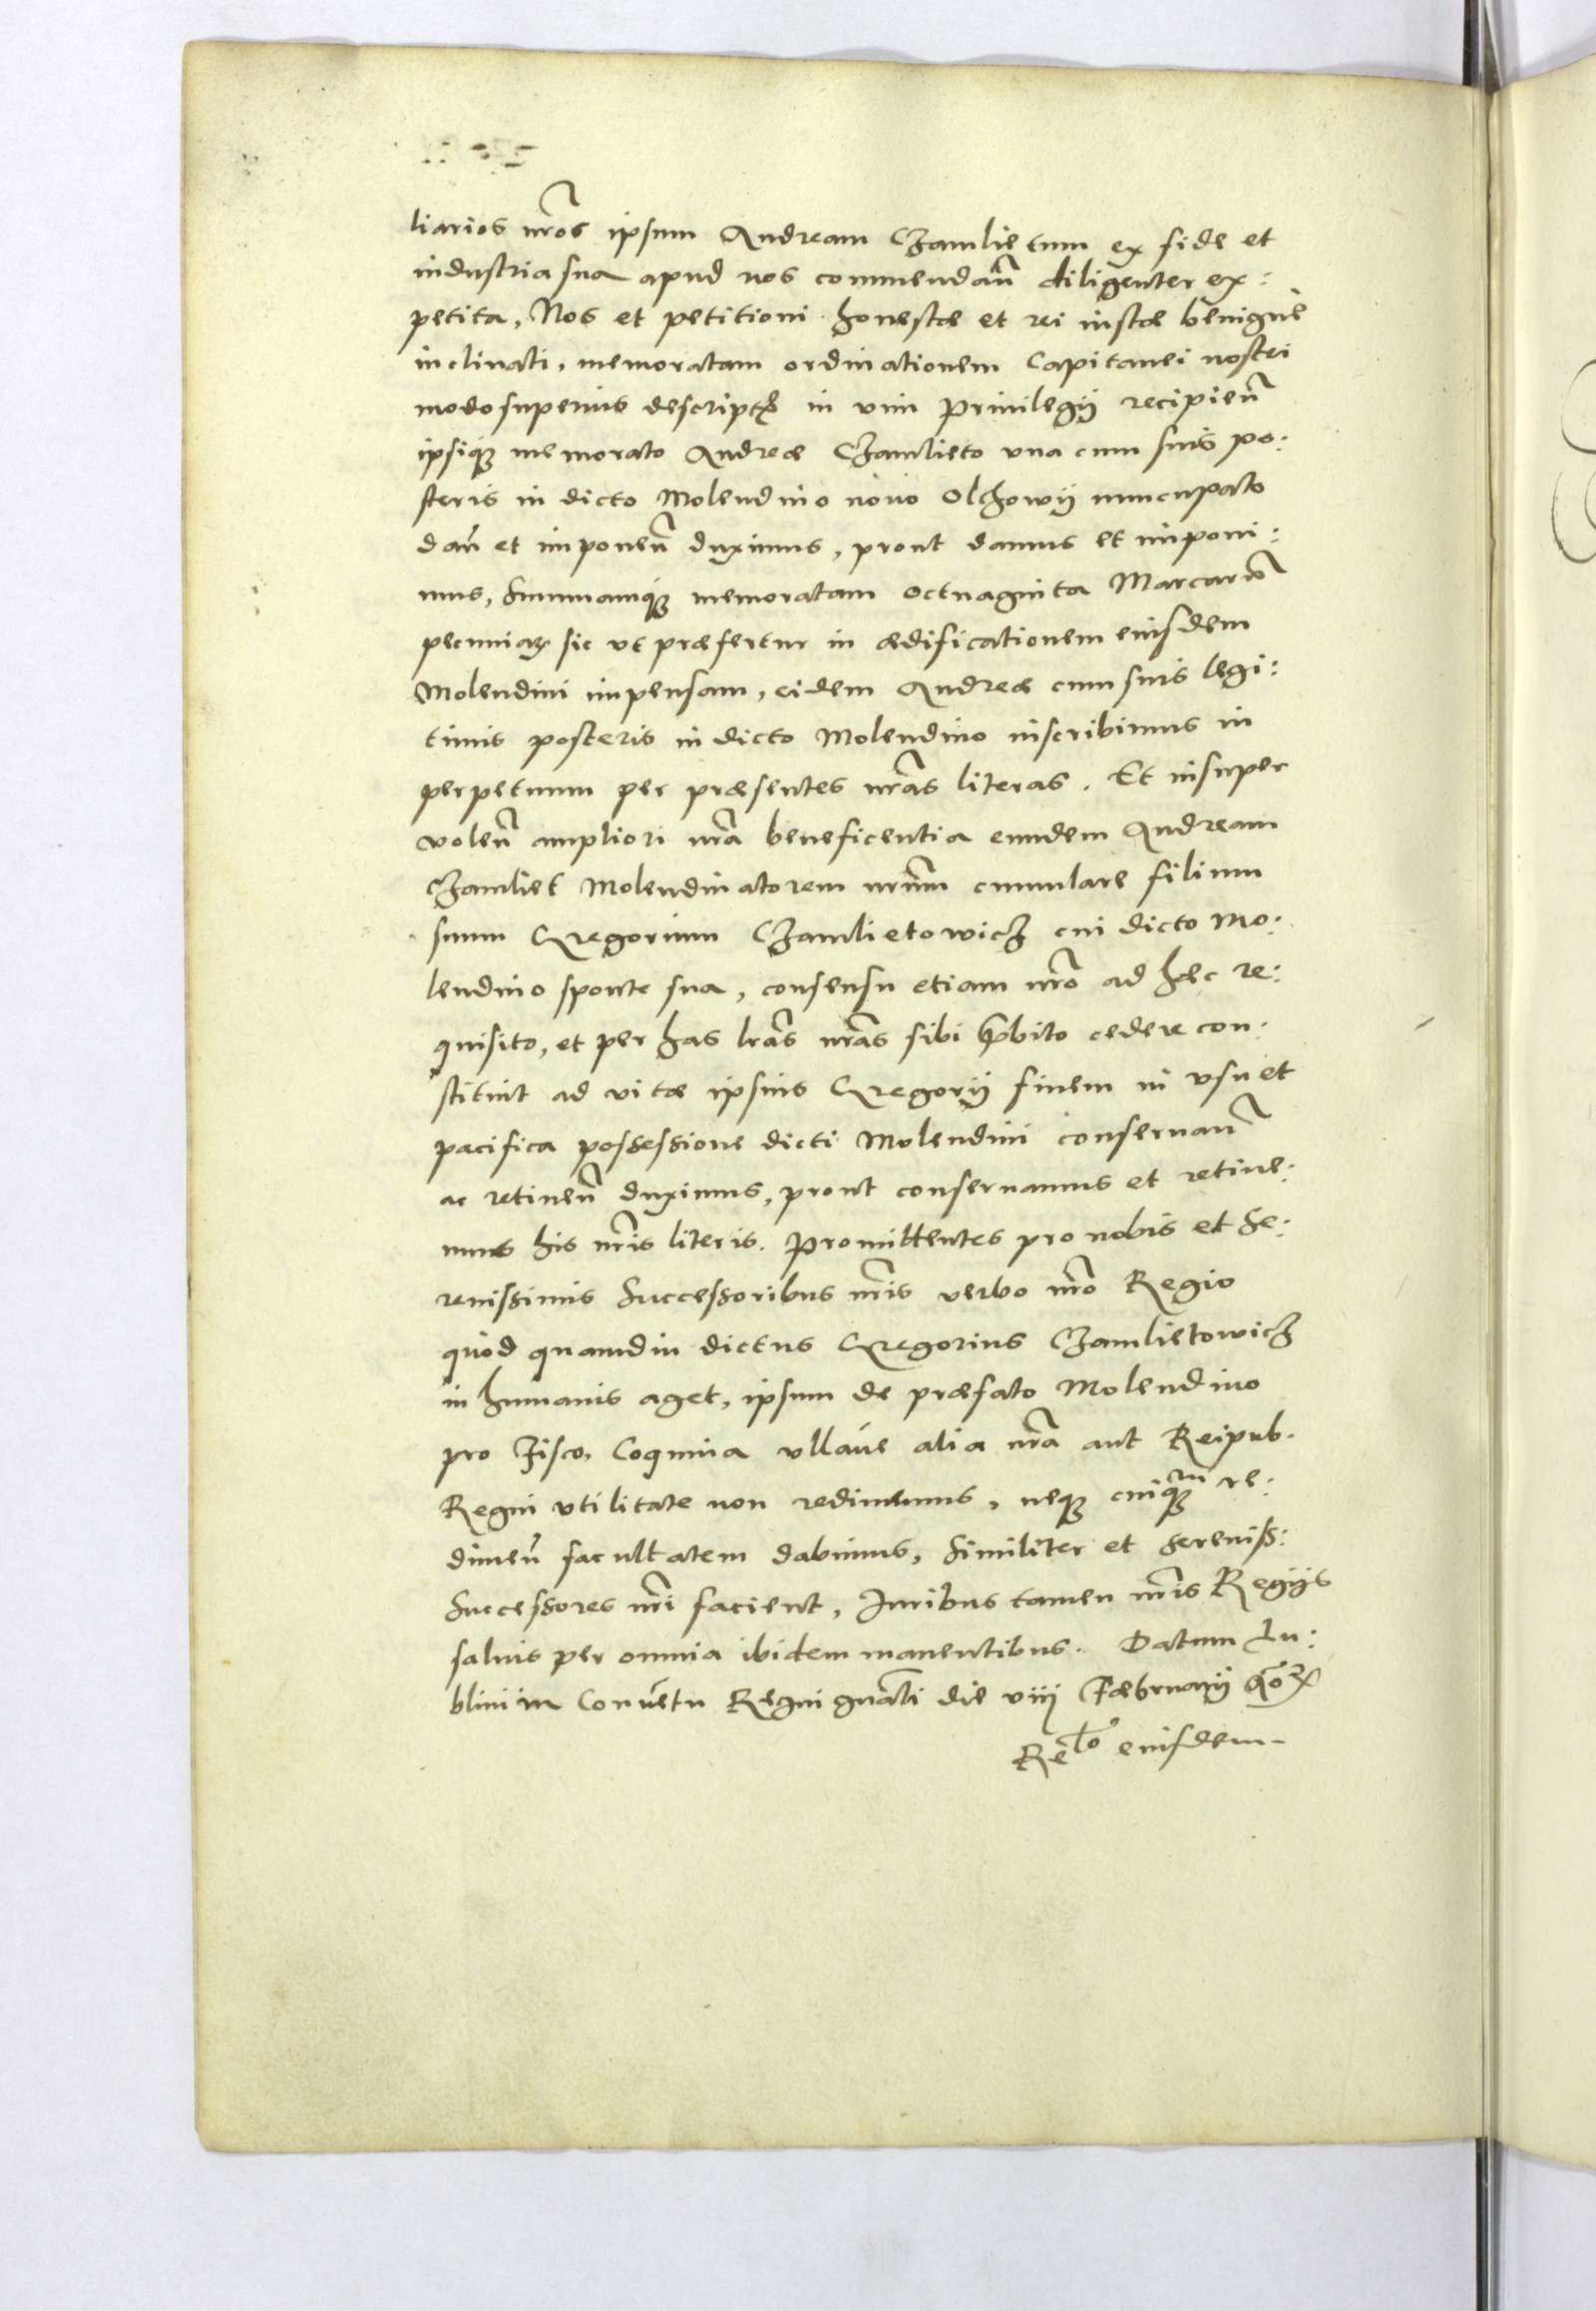 liarios nr̃os ipsum Andream Czamlietum ex fide et
industria sua apud nos commendañ diligenter ex:
petita, Nos et petitioni honestæ et rei iustæ benignè
inclinati, memoratam ordinationem Capitanei nostri
modo superius descripto in vim Priuilegij recipieñ
ipsiq; memorato Andreæ Czamlieto vna cum suis po:
steris in dicto Molendino nouo Olchowij nuncupato
dañ et imponeñ duximus, prout damus et imponi:
mus, Summamq; memoratam octuaginta Marcarũ
pecuniaꝝ sic vt præfertur in ædificationem eiusdem
Molendini impensam, eidem Andreæ cum suis legi:
timis posteris in dicto Molendino inscribimus in
perpetuum per præsentes nr̃as literas. Et insuper
voleñ ampliori nr̃a beneficentia eundem Andream
Czamliet Molendinatorem nr̃um cumulare filium
suum Gregorium Czamlietowicz cui dicto Mo:
lendino sponte sua, consensu etiam nr̃o ad hæc re:
quisito, et per has lr̃as nr̃as sibi p̃bito cedere con:
stituit ad vitæ ipsius Gregorij finem in vsu et
pacifica possessione dicti Molendini conseruañ
ac retineñ duximus, prout conseruamus et retine:
mus his nr̃is literis. Promittentes pro nobis et Se:
renissimis Successoribus nr̃is verbo nr̃o Regio
quòd quamdiu dictus Gregorius Czamlietowicz
in humanis aget, ipsum de præfato Molendino
pro Fisco, Coquina vllaue alia nr̃a aut Reipub.
Regni vtilitate non redimemus, neq; cuiq;m re:
dimeñ facultatem dabimus, Similiter et Sereniss:
Successores nr̃i facient, Iuribus tamen nr̃is Regijs
saluis per omnia ibidem manentibus. Datum Lu:
blini in Conuẽtu Regni gnãli die viij Fæbruarij
Re͠lo eiusdem